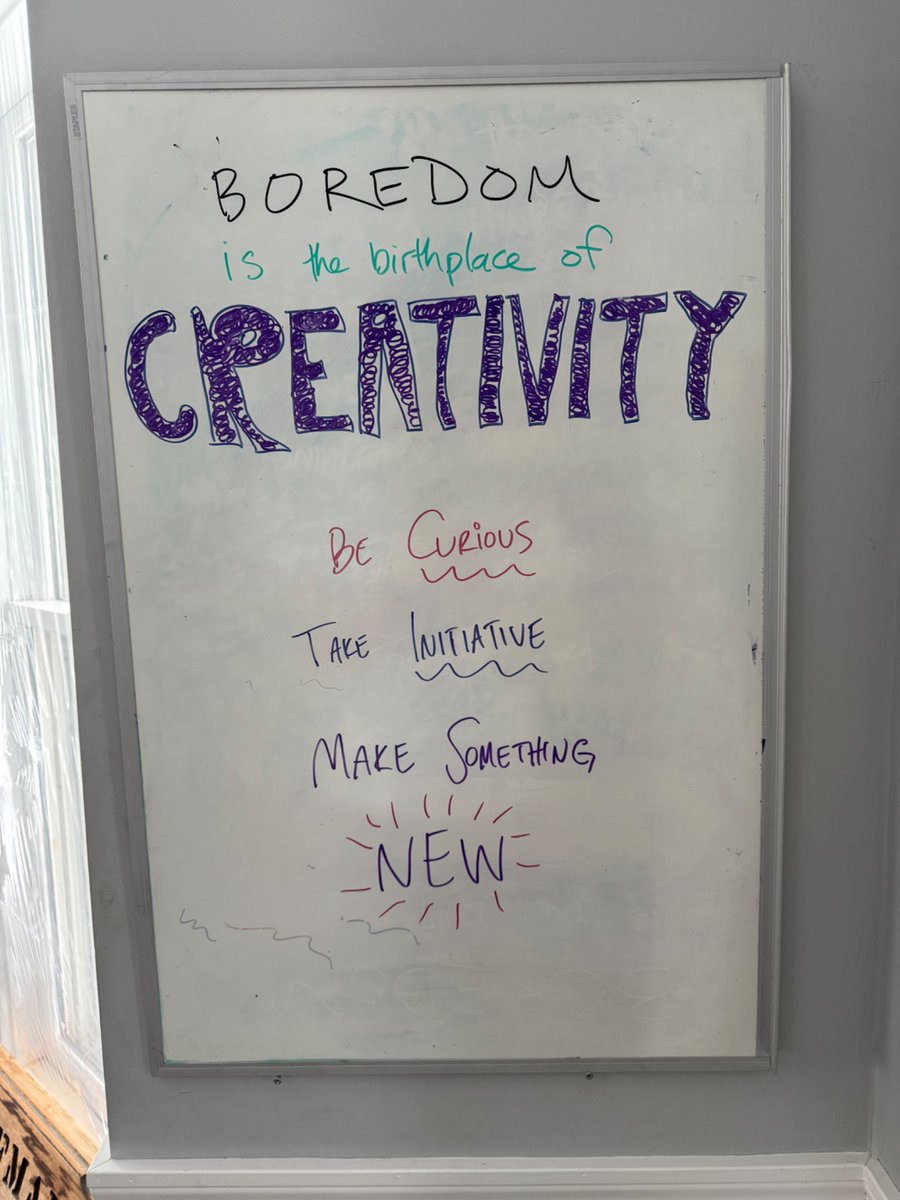 STAPLES
BOREDOM
is the birthplace of
CREATIVITY
BE CURIOUS
TAKE INITIATIVE
MAKE SOMETHING
NEW